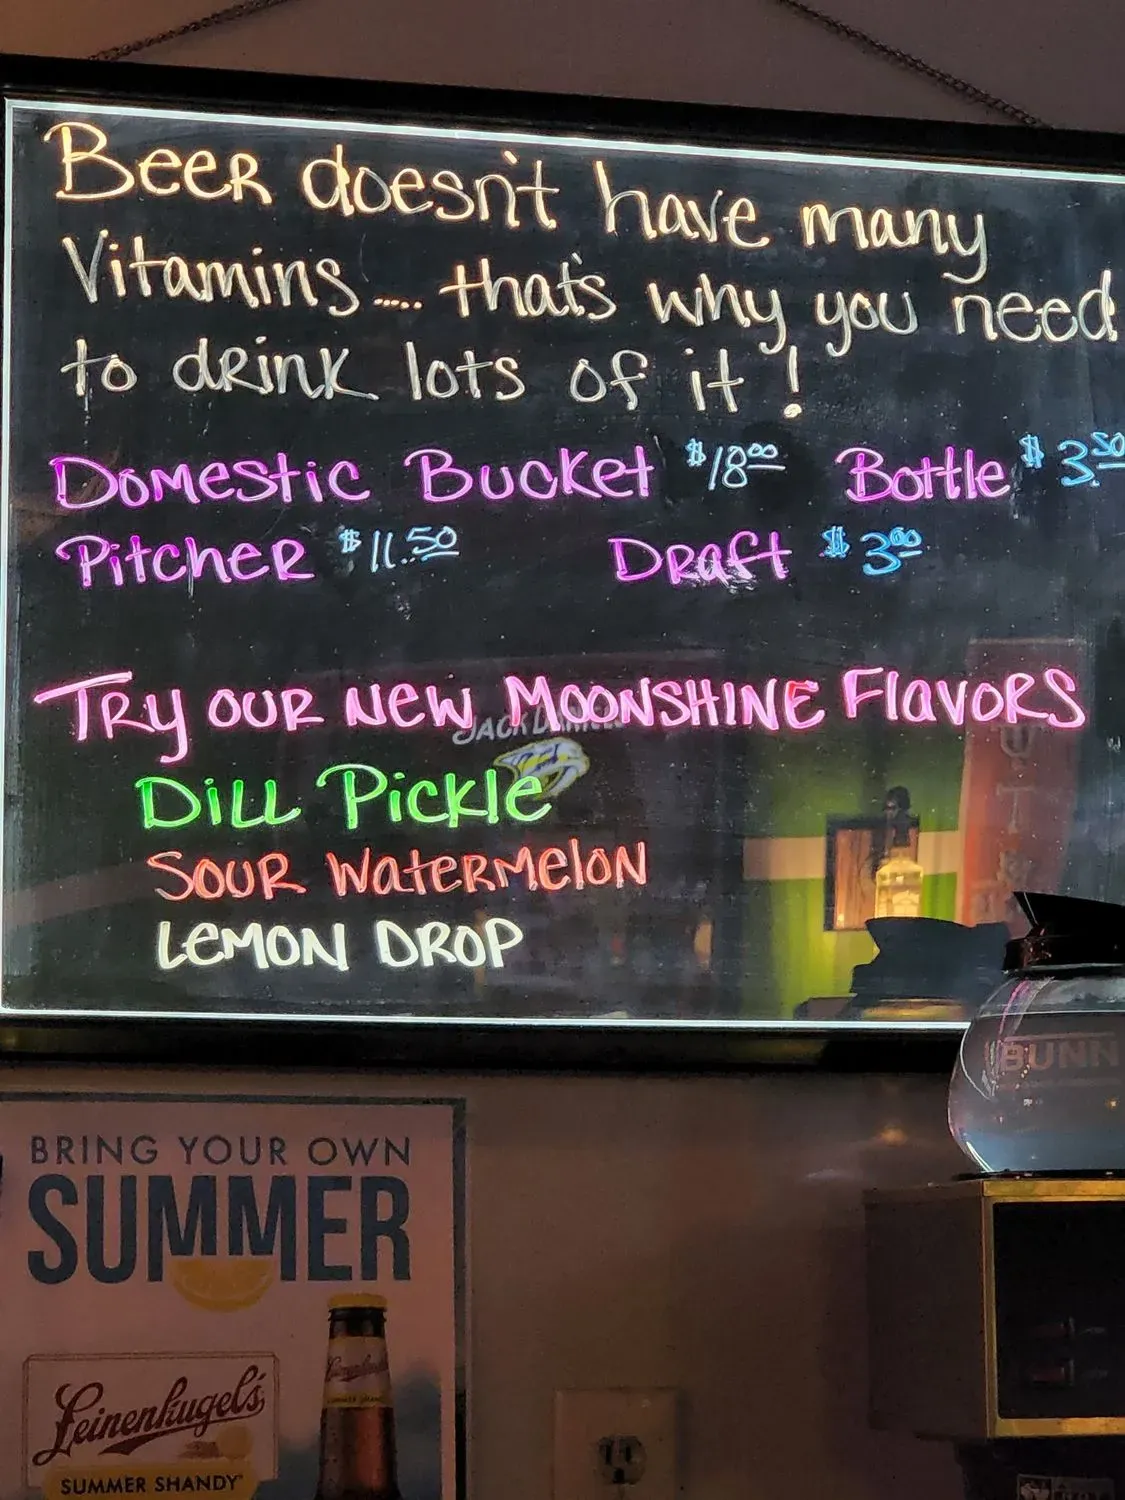 Beer doesn't have many
Vitamins..... that's why you need
to drink lots of it!
Domestic Bucket $18.00 Bottle $3.50
Pitcher $11.50 Draft $3.00
Try our new MOONSHINE Flavors
Dill Pickle
Sour Watermelon
LEMON DROP
JACK DANIEL
BUNN
BRING YOUR OWN
SUMMER
Leinenkugel's
SUMMER SHANDY